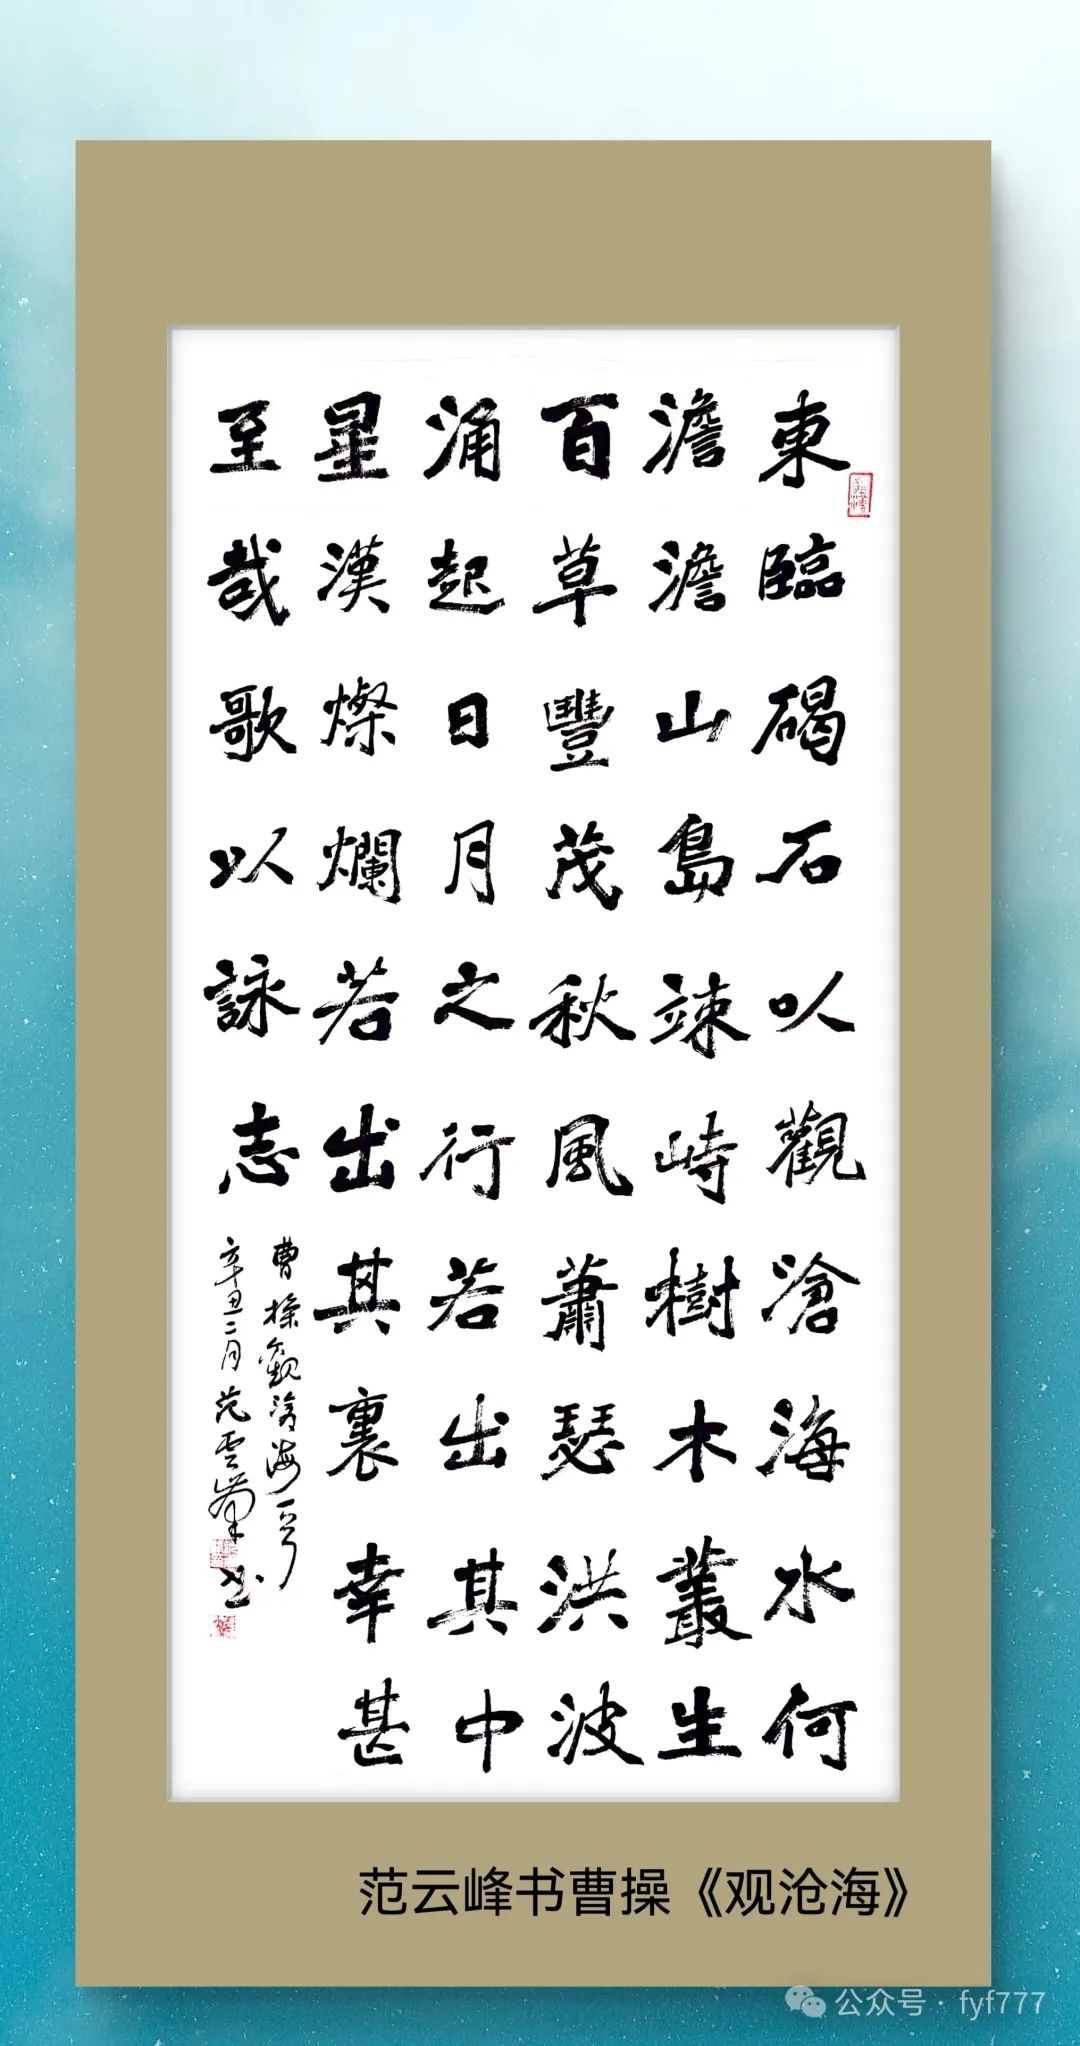 東臨碣石以觀滄海水何
澹澹山島竦峙樹木叢生
百草豐茂秋風蕭瑟洪波
涌起日月之行若出其中
星漢燦爛若出其裏幸甚
至哉歌以詠志
曹操觀滄海一首
辛丑二月范雲峰书
范云峰书曹操《观沧海》
公众号·fyf777